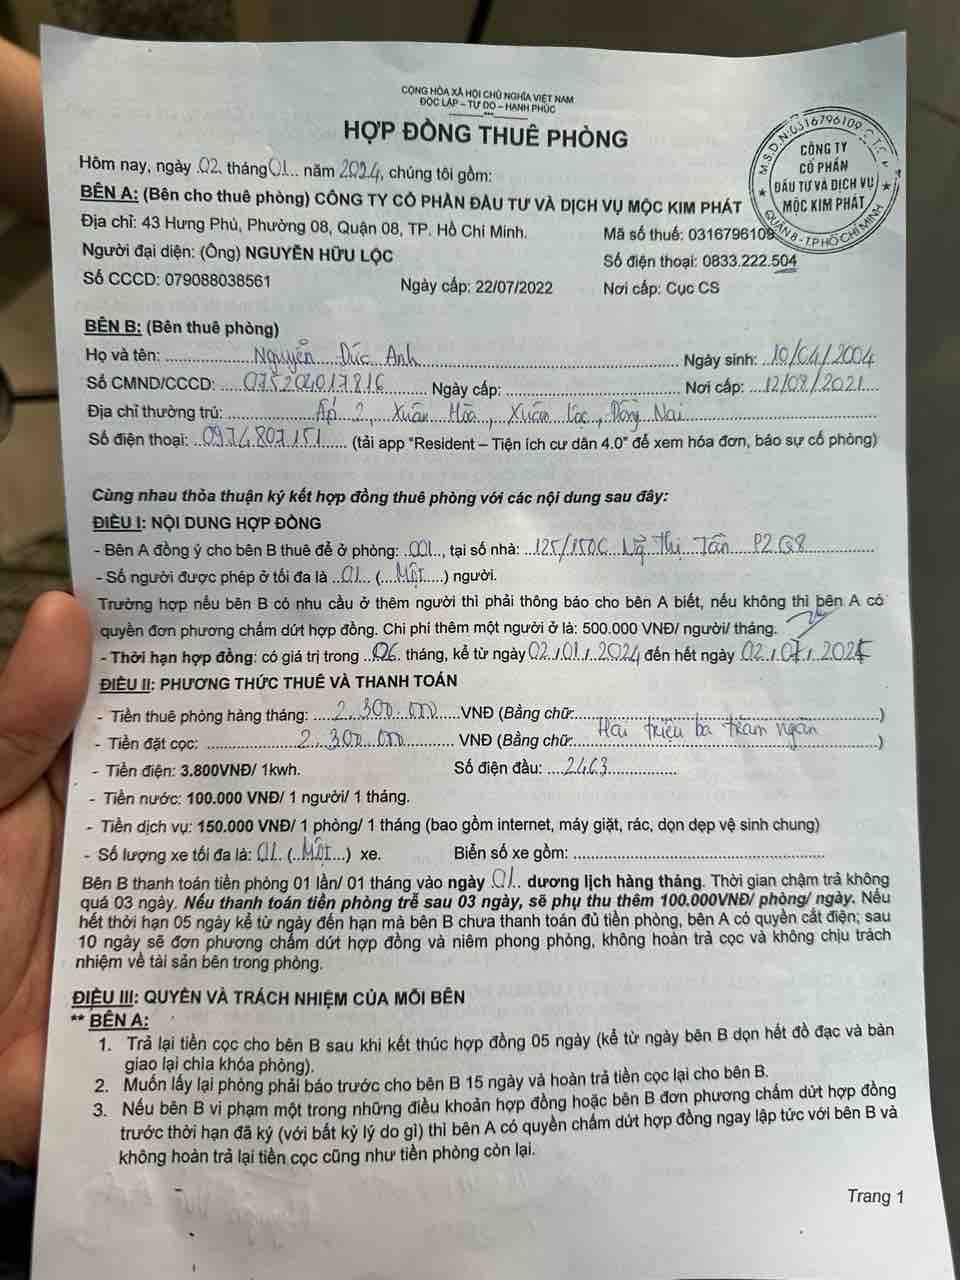 CỘNG HÒA XÃ HỘI CHỦ NGHĨA VIỆT NAM
ĐỘC LẬP – TỰ DO – HẠNH PHÚC
HỢP ĐỒNG THUÊ PHÒNG
M.S.D.N:0316796109
CÔNG TY
CỔ PHẦN
ĐẦU TƯ VÀ DỊCH VỤ
MỘC KIM PHÁT
QUẬN 8 - T.P HỒ CHÍ MINH
Hôm nay, ngày 02 tháng 01 năm 2024, chúng tôi gồm:
BÊN A: (Bên cho thuê phòng) CÔNG TY CỔ PHẦN ĐẦU TƯ VÀ DỊCH VỤ MỘC KIM PHÁT
Địa chỉ: 43 Hưng Phú, Phường 08, Quận 08, TP. Hồ Chí Minh. Mã số thuế: 0316796109
Người đại diện: (Ông) NGUYỄN HỮU LỘC Số điện thoại: 0833.222.504
Số CCCD: 079088038561 Ngày cấp: 22/07/2022 Nơi cấp: Cục CS
BÊN B: (Bên thuê phòng)
Họ và tên: Nguyễn Đức Anh Ngày sinh: 10/04/2004
Số CMND/CCCD: 075204017816 Ngày cấp: Nơi cấp: 12/08/2021
Địa chỉ thường trú: Ấp 2, Xuân Hòa, Xuân Lộc, Đồng Nai
Số điện thoại: 0974807151 (tải app "Resident – Tiện ích cư dân 4.0" để xem hóa đơn, báo sự cố phòng)
Cùng nhau thỏa thuận ký kết hợp đồng thuê phòng với các nội dung sau đây:
ĐIỀU I: NỘI DUNG HỢP ĐỒNG
- Bên A đồng ý cho bên B thuê để ở phòng: 001, tại số nhà: 125/150C Thị Tần P2 Q8
- Số người được phép ở tối đa là 01 (Một) người.
Trường hợp nếu bên B có nhu cầu ở thêm người thì phải thông báo cho bên A biết, nếu không thì bên A có
quyền đơn phương chấm dứt hợp đồng. Chi phí thêm một người ở là: 500.000 VNĐ/ người/ tháng.
- Thời hạn hợp đồng: có giá trị trong 06 tháng, kể từ ngày 02/01/2024 đến hết ngày 02/07/
ĐIỀU II: PHƯƠNG THỨC THUÊ VÀ THANH TOÁN
- Tiền thuê phòng hàng tháng: 2.300.000 VNĐ (Bằng chữ: )
- Tiền đặt cọc: 2.300.000 VNĐ (Bằng chữ: Hai triệu ba trăm ngàn )
- Tiền điện: 3.800VNĐ/ 1kwh. Số điện đầu: 2463
- Tiền nước: 100.000 VNĐ/ 1 người/ 1 tháng.
- Tiền dịch vụ: 150.000 VNĐ/ 1 phòng/ 1 tháng (bao gồm internet, máy giặt, rác, dọn dẹp vệ sinh chung)
- Số lượng xe tối đa là: 01 (Một) xe. Biển số xe gồm:
Bên B thanh toán tiền phòng 01 lần/ 01 tháng vào ngày 01 dương lịch hàng tháng. Thời gian chậm trả không
quá 03 ngày. Nếu thanh toán tiền phòng trễ sau 03 ngày, sẽ phụ thu thêm 100.000VNĐ/ phòng/ ngày. Nếu
hết thời hạn 05 ngày kể từ ngày đến hạn mà bên B chưa thanh toán đủ tiền phòng, bên A có quyền cắt điện; sau
10 ngày sẽ đơn phương chấm dứt hợp đồng và niêm phong phòng, không hoàn trả cọc và không chịu trách
nhiệm về tài sản bên trong phòng.
ĐIỀU III: QUYỀN VÀ TRÁCH NHIỆM CỦA MỖI BÊN
** BÊN A:
1. Trả lại tiền cọc cho bên B sau khi kết thúc hợp đồng 05 ngày (kể từ ngày bên B dọn hết đồ đạc và bàn
giao lại chìa khóa phòng).
2. Muốn lấy lại phòng phải báo trước cho bên B 15 ngày và hoàn trả tiền cọc lại cho bên B.
3. Nếu bên B vi phạm một trong những điều khoản hợp đồng hoặc bên B đơn phương chấm dứt hợp đồng
trước thời hạn đã ký (với bất kỳ lý do gì) thì bên A có quyền chấm dứt hợp đồng ngay lập tức với bên B và
không hoàn trả lại tiền cọc cũng như tiền phòng còn lại.
Trang 1